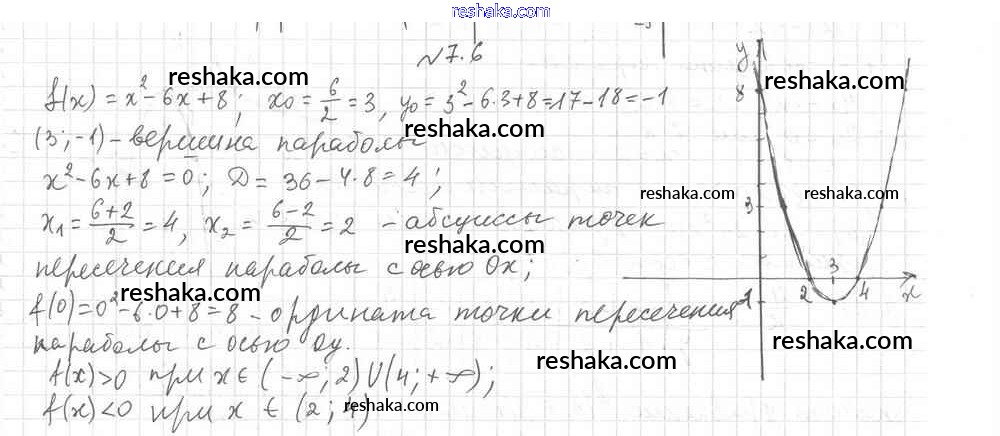 reshaka.com
№ 7.6
f(x) = x² - 6x + 8; x₀ = 6/2 = 3, y₀ = 3² - 6·3 + 8 = 17 - 18 = -1
(3; -1) - вершина параболы
x² - 6x + 8 = 0; D = 36 - 4·8 = 4;
x₁ = (6+2)/2 = 4, x₂ = (6-2)/2 = 2 - абсциссы точек
пересечения параболы с осью Ox;
f(0) = 0² - 6·0 + 8 = 8 - ордината точки пересечения
параболы с осью Oy.
f(x) > 0 при x ∈ (-∞; 2) U (4; +∞);
f(x) < 0 при x ∈ (2; 4)
y
8
3
3
2
4
x
-1
reshaka.com
reshaka.com
reshaka.com
reshaka.com
reshaka.com
reshaka.com
reshaka.com
reshaka.com
reshaka.com
reshaka.com
reshaka.com